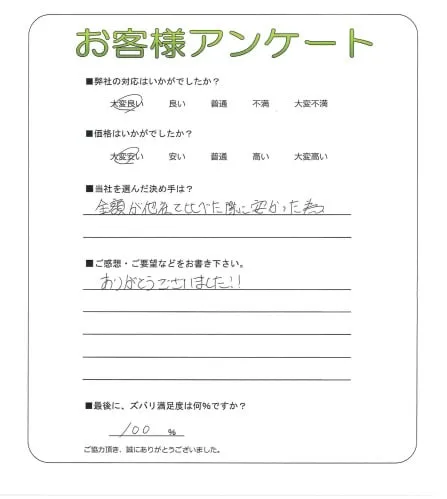 お客様アンケート
■弊社の対応はいかがでしたか?
大変良い 良い 普通 不満 大変不満
■価格はいかがでしたか?
大変安い 安い 普通 高い 大変高い
■当社を選んだ決め手は?
金額が他社で比べた際に安かった為
■ご感想・ご要望などをお書き下さい。
ありがとうございました!!
■最後に、ズバリ満足度は何%ですか?
100 %
ご協力頂き、誠にありがとうございました。